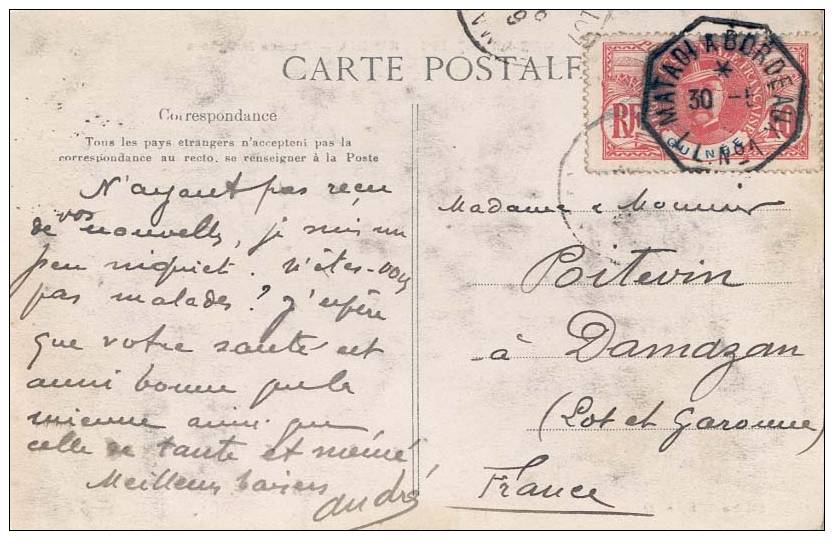 CARTE POSTALE
MATADI A BORDEAUX
*
30 -5
L.L. N°1
RF
GUINÉE
10
Correspondance
Tous les pays etrangers n'acceptent pas la
correspondance au recto, se renseigner à la Poste
N'ayant pas reçu
de vos nouvelles, je suis un
peu inquiet. N'êtes-vous
pas malades? J'espère
que votre santé est
aussi bonne que la
mienne ainsi que
celle de tante et mémé
Meilleurs baisers
André
Madame & Monsieur
Poitevin
à Damazan
(Lot et Garonne)
France